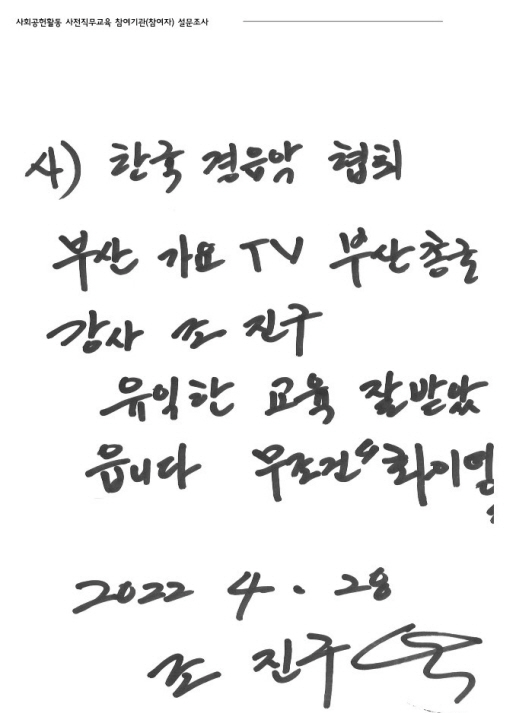 사회공헌활동 사전직무교육 참여기관(참여자) 설문조사
사) 한국 경음악 협회
부산 가요 TV 부산총국
강사 조 진구
유익한 교육 잘받았
읍니다 무조건 화이팅
2022 4 . 28
조 진구